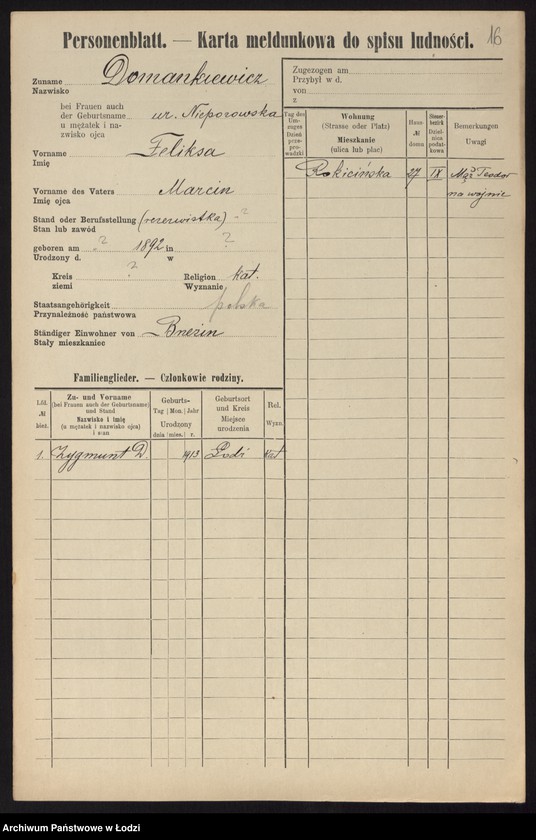 16
Personenblatt. — Karta meldunkowa do spisu ludności.
Zuname
Nazwisko
Domankiewicz
bei Frauen auch
der Geburtsname
u mężatek i na-
zwisko ojca
ur. Nieporowska
Vorname
Imię
Feliksa
Vorname des Vaters
Imię ojca
Marcin
Stand oder Berufsstellung
Stan lub zawód
(rezerwistka) ?
geboren am ? 1892 in ?
Urodzony d. w
Kreis ?
ziemi
Religion kat.
Wyznanie
Staatsangehörigkeit
Przynależność państwowa
polska
Ständiger Einwohner von
Stały mieszkaniec
Brzezin
Familienglieder. — Członkowie rodziny.
Lfd.
№
bież.
Zu- und Vorname
(bei Frauen auch der Geburtsname)
und Stand
Nazwisko i imię
(u mężatek i nazwisko ojca)
i stan
Geburts-
Tag Mon. Jahr
Urodzony
dnia mies. r.
Geburtsort
und Kreis
Miejsce
urodzenia
Rel.
Wyzn.
1. Zygmunt D. 1913 Łodzi kat
Zugezogen am
Przybył w d.
von
z
Tag des
Um-
zuges
Dzień
prze-
pro-
wadzki
Wohnung
(Strasse oder Platz)
Mieszkanie
(ulica lub plac)
Haus-
№
domu
Steuer-
bezirk
Dziel-
nica
podat-
kowa
Bemerkungen
Uwagi
Rokicińska 27 IX Mąż Teodor
na wojnie
Archiwum Państwowe w Łodzi